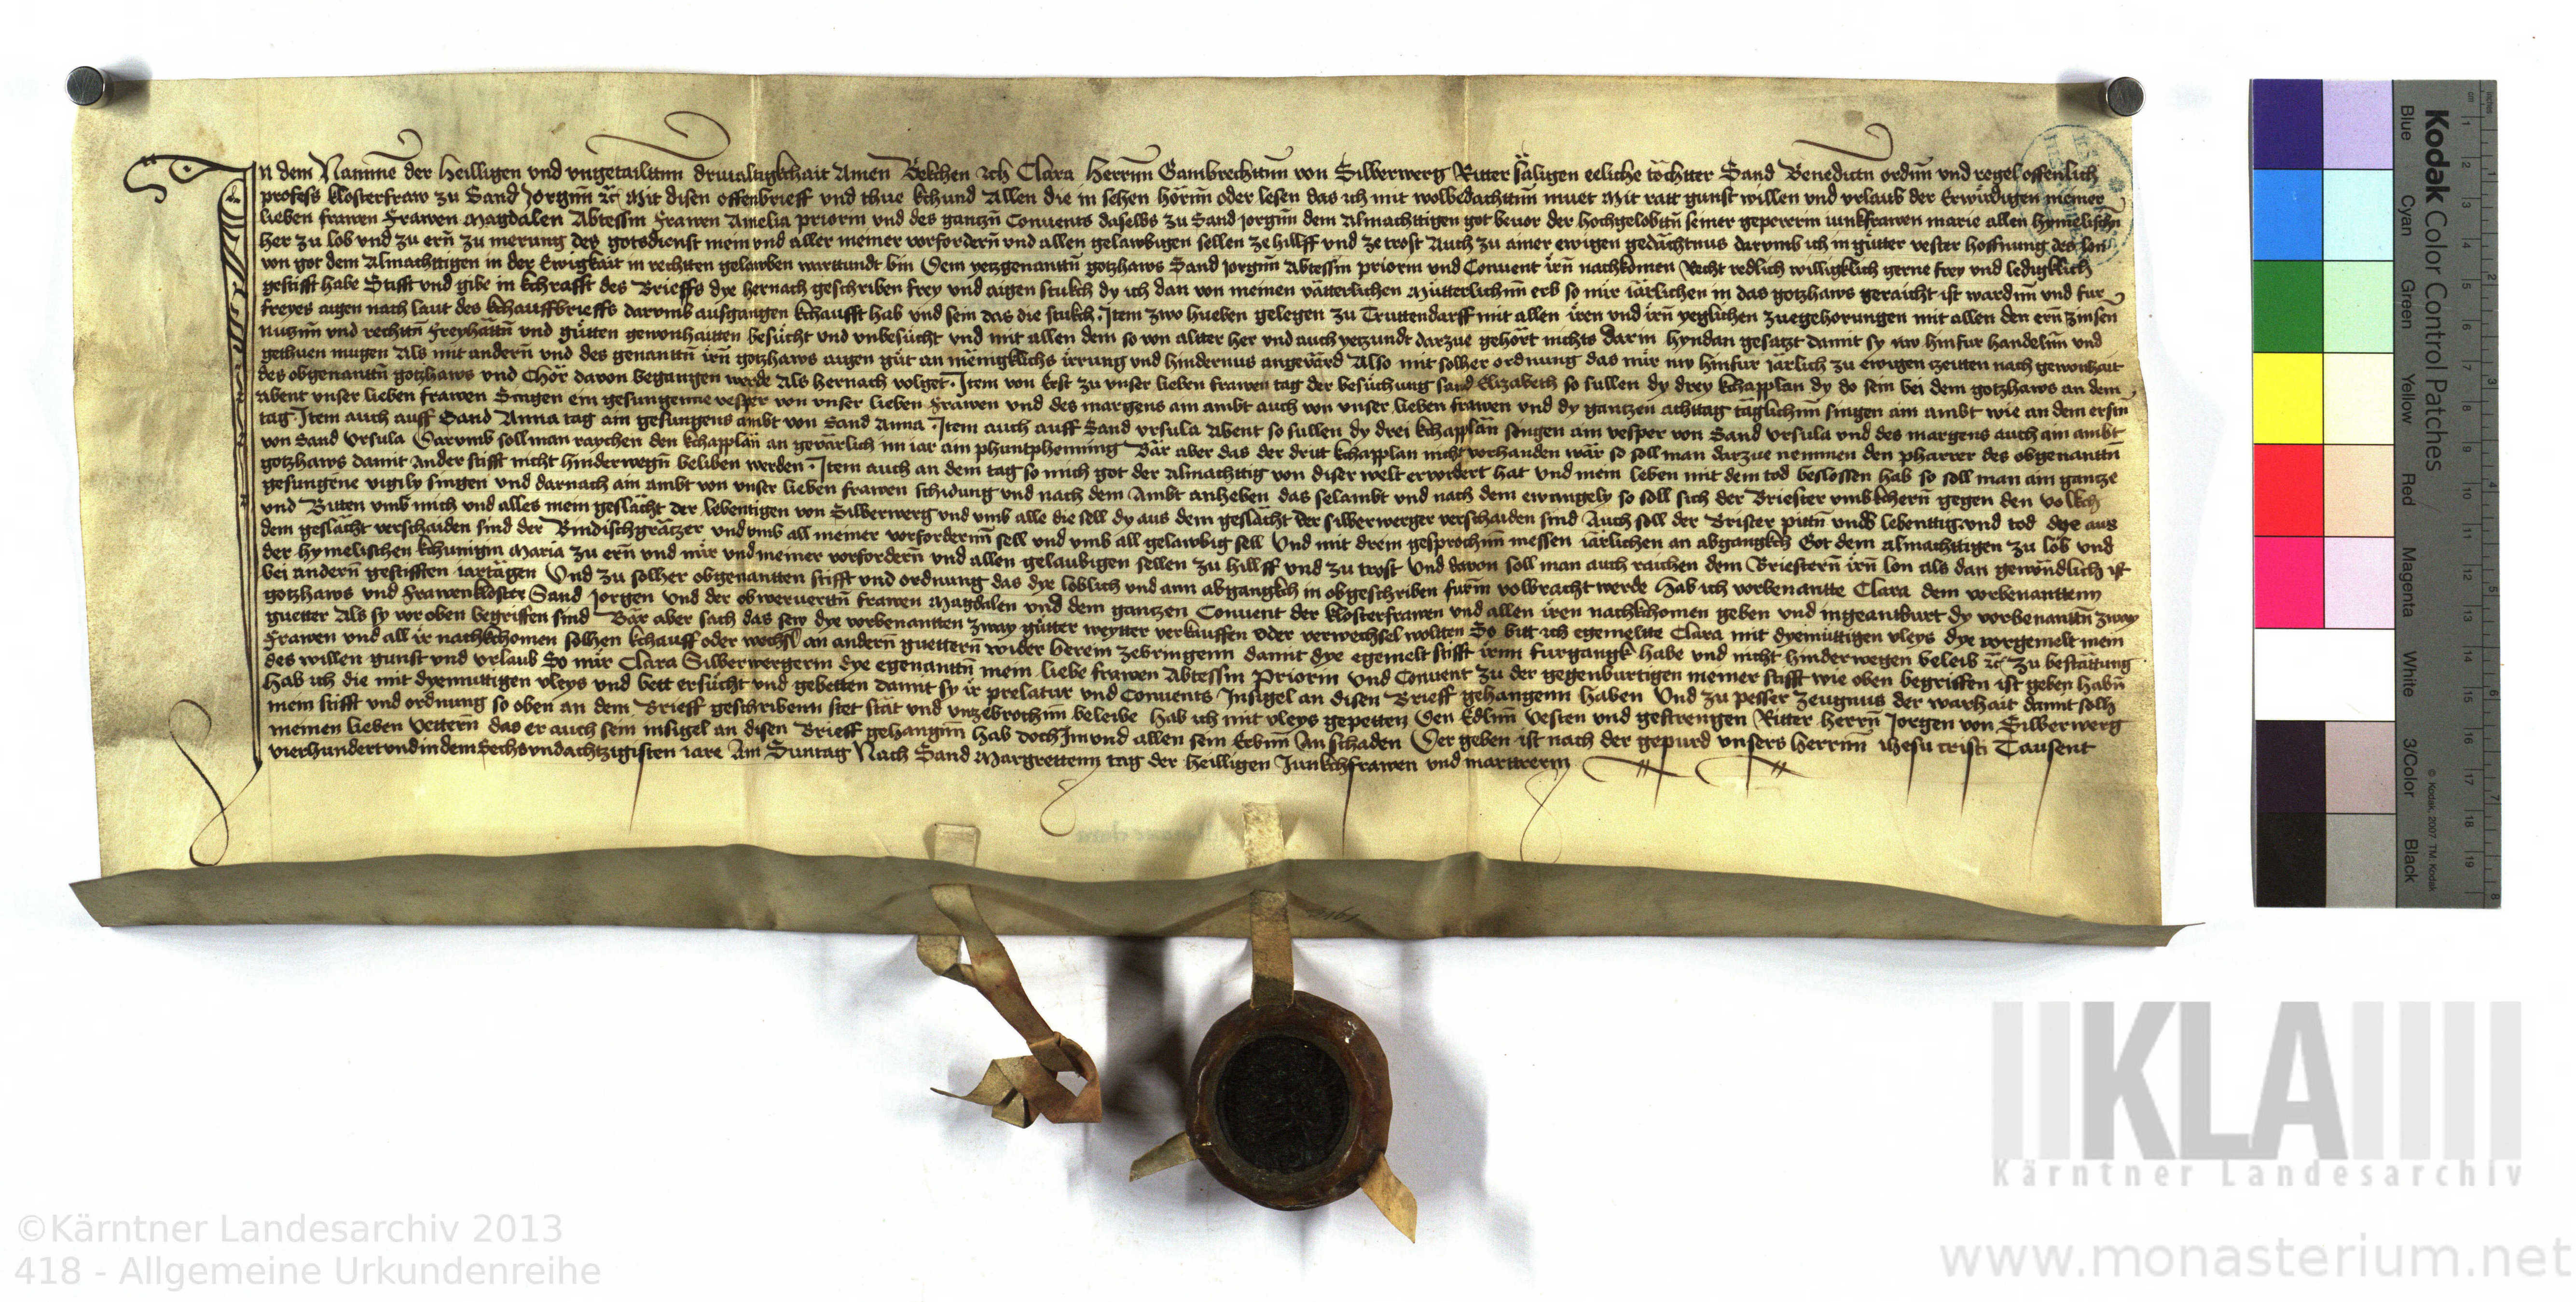 In dem Namme der heilligen vnd vngetailttnn driualtigkchait Amen Bekchen Ich Clara herrnn Gambrechttnn von Silberwerg Ritter säligen eeliche töchtter Sand Benedictn ordnn vnd regel offenlich
profess klosterfraw zu Sand Jorgnn etc Mit disen offenbrieff vnd thue kchund Allen die in sehen hörnn oder lesen das ich mit wolbedachttnn muet Mit ratt gunst willen vnd vrlaub der Erwirdigen meiner
lieben frawen Frawen Magdalen Abtessin Frawen Amelia priorin vnd des ganczn Conuents daselbs zu Sand Jorgnn dem Almachttigen got beuor der hochgelobttn seiner gepererin iunkfrawen marie allen hymelischn
her zu lob vnd zu ern zu merung des gotsdienst mein vnd aller meiner vorfordern vnd allen gelawbigen sellen ze hillff vnd ze trost Auch zu ainer ewigen gedächtnus darumb ich in gütter vester hoffnung des lon
von got dem Almachttigen in der Ewigkait in rechtten gelawben warttundt bin Dem yetzgenanttn gotzhaws Sand Jorgnn Abtessin priorin vnd Conuent irn nachkomen Recht redlich williglich gerne frey vnd ledigklich
gestifft habe Stifft vnd gibe in kchrafft des Brieffs dye hernach geschriben frey vnd aigen stukch dy ich dan von meinen vätterlichen Mütterlichnn erb so mir iärlichen in das gotzhaws geraicht ist wardnn vnd fur
freyes aigen nach laut des kchauffbrieffs darumb ausgangen kchaufft hab vnd sein das die stukch Item zwo hueben gelegen zu Truttendarff mit allen iren vnd irn yeglichen zuegehorungen mit allen den ern zinsen
nutznn vnd rechttn freyhättn vnd gütten gewonhaitten besücht vnd vnbesücht vnd mit allen dem so von altter her vnd auch yetzundt darzue gehört nichts darin hyndan gesatzt damit sy nw hinfur handelnn vnd
gethuen mugen Als mit andern vnd des genanttn irn gotzhaws aigen güt an menigklichs irrung vnd hindernus angevärd Also mit solher ordnung das mir nw hinfür järlich zu ewigen zeitten nach gewonhait
des obgenanttn gotzhaws vnd Chör davon begangen werde Als hernach volget Item von erst zu vnser lieben frawen tag der besüchung sand Elizabeth so sullen dy drey kchapplan dy do sein bei dem gotzhaws an dem
abent vnser lieben frawen Singen ein gesungenne vesper von vnser lieben frawen vnd des margens ain ambt auch von vnser lieben frawen vnd dy gantzen achttag täglichnn singen ain ambt wie an dem ersnn
tag Item auch auff Sand Anna tag ain gesungens ambt von Sand Anna Item auch auff Sand vrsula Abent so sullen dy drei kchapplän singen ain vesper von Sand vrsula vnd des margens auch ain ambt
von Sand Vrsula Darumb soll man raychen den kchapplän an gevärlich im iar ain phuntphenning Bär aber das der dritt kchapplan nicht vorhanden wär so soll man darzue nemmen den pharrer des obgenanttn
gotzhaws damit ander stifft nicht hinderwegn beliben werden Item auch an dem tag so mich got der Almachttig von diser welt ervordert hat vnd mein leben mit dem tod beslossen hab so soll man ain gantze
gesungene vigily singen vnd darnach ain ambt von vnser lieben frawen schidung vnd nach dem Ambt anheben das selambt vnd nach dem ewangely so soll sich der Briester vmbkchern gegen den Volkch
vnd Bitten vmb mich vnd alles mein geslächt der lebentigen von Silberwerg vnd vmb alle die sell dy aus dem geslächt der silberwerger verschaiden sind Auch soll der Brister pittn vmb lebenttig vnd tod dye aus
dem geslächt verschaiden sind der Bindischgrätzer vnd vmb all meiner vorfordernn sell vnd vmb all gelawbig sell Vnd mit drein gesprochnn messen iärlichen an abgangkch Got dem almachttigen zu lob vnd
der hymelischen kchunigin Maria zu ern vnd mir vnd meiner vorfordern vnd allen gelaubigen sellen zu hillff vnd zu trost Vnd davon soll man auch raichen dem Briestern irn lon als dan gewöndlich ist
bei andern gestifften iartägen Vnd zu solher obgenantten stifft vnd ordnung das dye loblich vnd ann abgangkch in obgeschriben furm volbracht werde Hab ich vorbenantte Clara dem vorbenanttenn
gotzhaws vnd Frawenkloster Sand Jorgen vnd der obweruerttn frawen Magdalen vnd dem gantzen Conuent der klosterfrawen vnd allen iren nachkchomen geben vnd ingeantburt dy vorbenanttn zway
guetter Als sy vor oben begriffen sind Bär aber sach das sew dye vorbenantten zway gütter weytter verkauffen oder verwechsel woltten So bitt ich egemeltte Clara mit dyemüttigen vleys dye vorgemelt mein
Frawen vnd all ir nachkchomen solhen kchauff oder wechsl an andern guettern wider herein zebringenn damit dye egemelt stifft irnn furgangk habe vnd nicht hinderwegen beleib etc Zu bestättung
des willen gunst vnd vrlaub So mir Clara Silberwergerin dye egenanttn mein liebe frawen Abtessin Priorin vnd Conuent zu der gegenburtigen meiner stifft wie oben begriffen ist geben habn
hab ich die mit dyemuttigen vleys vnd bett ersücht vnd gebetten damit sy ir prelatur vnd Conuents Insigel an disen Brieff gehangenn haben Vnd zu pesser zeugnus der warhait damit solh
mein stifft vnd ordnung so oben an dem Brieff geschribenn stet stät vnd vnzebrochnn beleibe hab ich mit vleys gepetten Den Edlnn vesten vnd gestrengen Ritter herrn Jorgen von Silberwerg
meinen lieben Vettern das er auch sein insigel an disen Brieff gehangnn hab doch Im vnd allen sein Erbnn An schaden Der geben ist nach der gepurd vnsers herrnn ihesu cristi Tausent
vierhundert vnd in dem Sechsvndachtzigisten iare Am Suntag Nach Sand Margrettenn tag der heilligen Junkchfrawen vnd marttrerin
Kodak Color Control Patches
Blue Cyan Green Yellow Red Magenta White 3/Color Black
© Kodak, 2007. TM: Kodak
cm 1 2 3 4 5 6 7 8 9 10 11 12 13 14 15 16 17 18 19
inches 1 2 3 4 5 6 7 8
KLA
Kärntner Landesarchiv
©Kärntner Landesarchiv 2013
418 - Allgemeine Urkundenreihe
www.monasterium.net